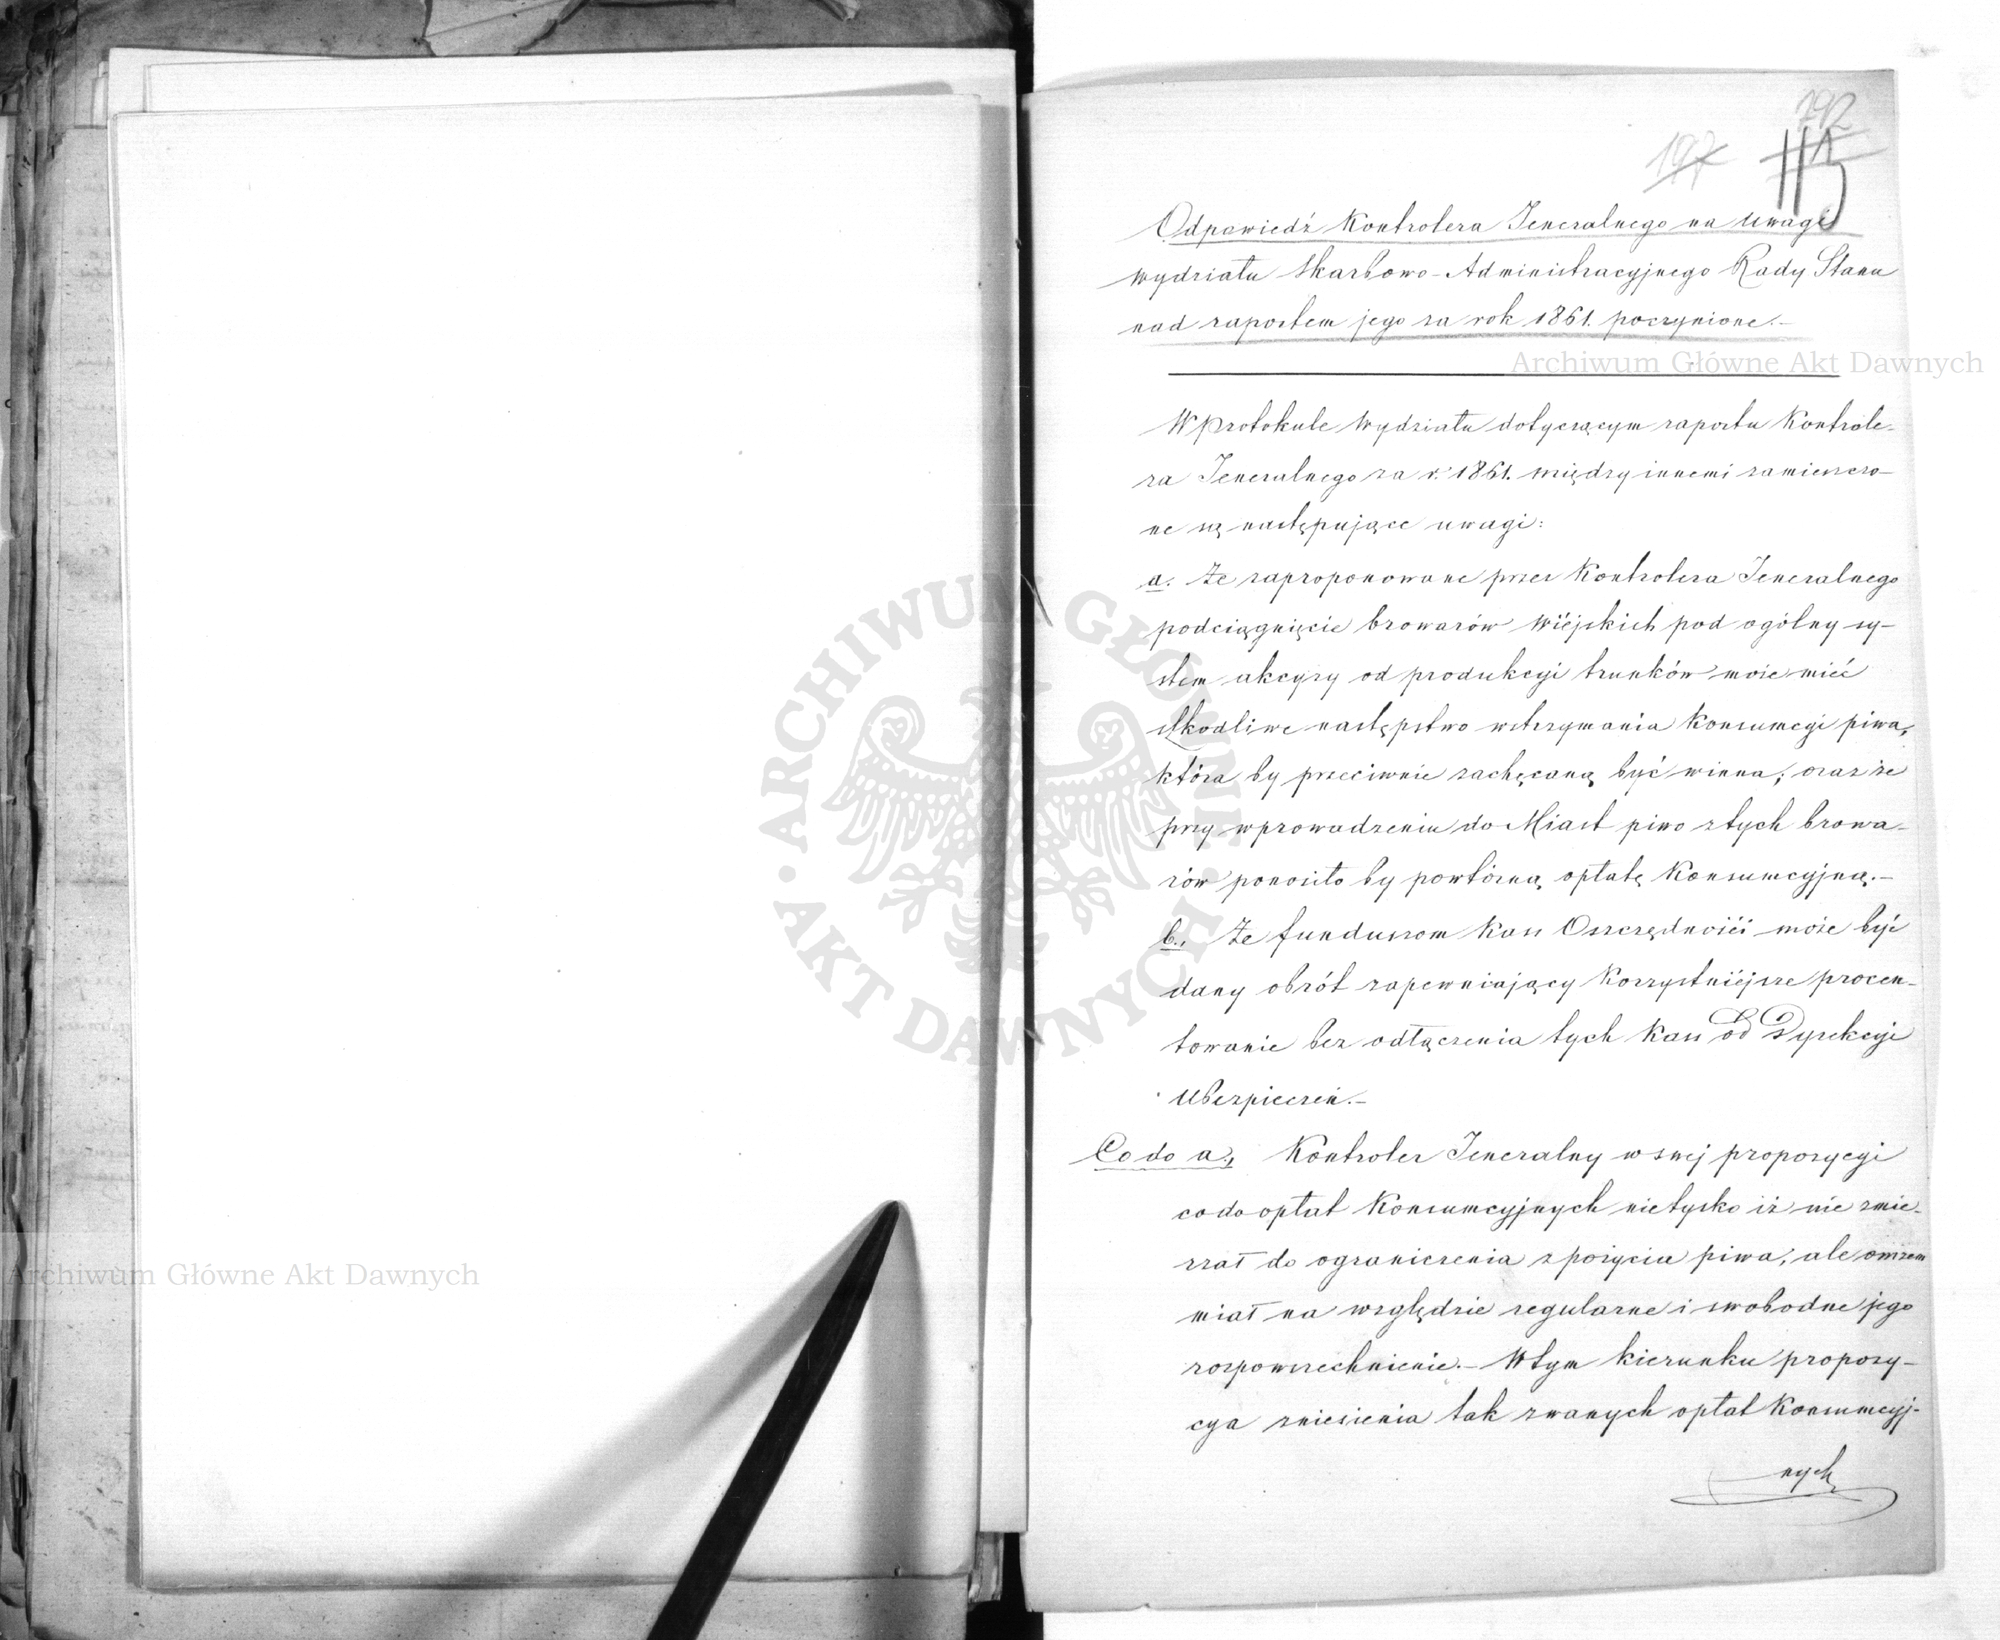 292
197
115
Odpowiedź Kontrolera Jeneralnego na Uwagi
Wydziału Skarbowo-Administracyjnego Rady Stanu
nad raportem jego za rok 1861. poczynione.-
Archiwum Główne Akt Dawnych
W Protokule Wydziału dotyczącym raportu Kontrole-
ra Jeneralnego za r. 1861. między innemi zamieszczo-
ne są następujące uwagi:
a. że zaproponowane przez Kontrolera Jeneralnego
podciągnięcie browarów Wiejskich pod ogólny sy-
stem akcyzy od produkcyi trunków może mieć
szkodliwe następstwo wstrzymania Konsumcyi piwa,
która by przeciwnie zachęcaną być winna; oraz że
przy wprowadzeniu do Miast piwo z tych browa-
rów ponosiło by powtórną opłatę Konsumcyjną.-
b., że funduszom Kass Oszczędności może być
dany obrót zapewniający Korzystniejsze procen-
towanie bez odłączenia tych Kass od Dyrekcyi
Ubezpieczeń.-
Co do a., Kontroler Jeneralny w swej propozycyi
co do opłat Konsumcyjnych nietylko iż nie zmie-
rzał do ograniczenia spożycia piwa, ale owszem
miał na względzie regularne i swobodne jego
rozpowszechnienie.- W tym kierunku propozy-
cya zniesienia tak zwanych opłat Konsumcyj-
nych
Archiwum Główne Akt Dawnych
ARCHIWUM GŁÓWNE · AKT DAWNYCH ·